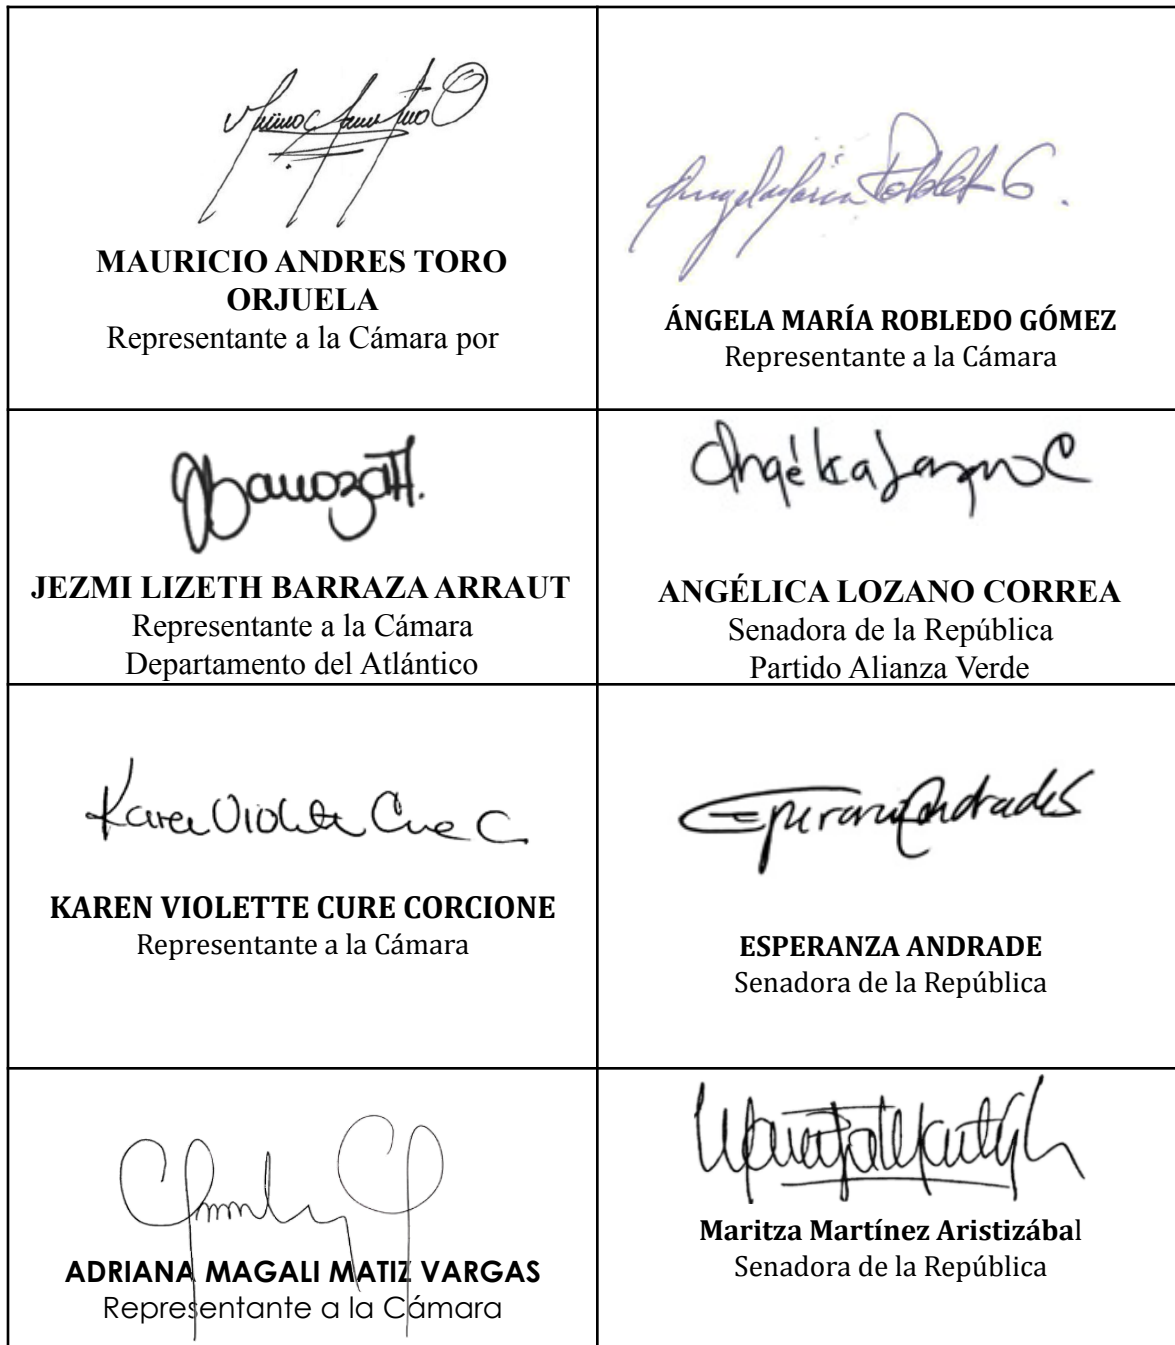 MAURICIO ANDRES TORO
ORJUELA
Representante a la Cámara por
ÁNGELA MARÍA ROBLEDO GÓMEZ
Representante a la Cámara
JEZMI LIZETH BARRAZA ARRAUT
Representante a la Cámara
Departamento del Atlántico
Angélica Lozano C
ANGÉLICA LOZANO CORREA
Senadora de la República
Partido Alianza Verde
Karen Violette Cure C
KAREN VIOLETTE CURE CORCIONE
Representante a la Cámara
Esperanza Andrade
ESPERANZA ANDRADE
Senadora de la República
ADRIANA MAGALI MATIZ VARGAS
Representante a la Cámara
Maritza Martínez Aristizábal
Senadora de la República